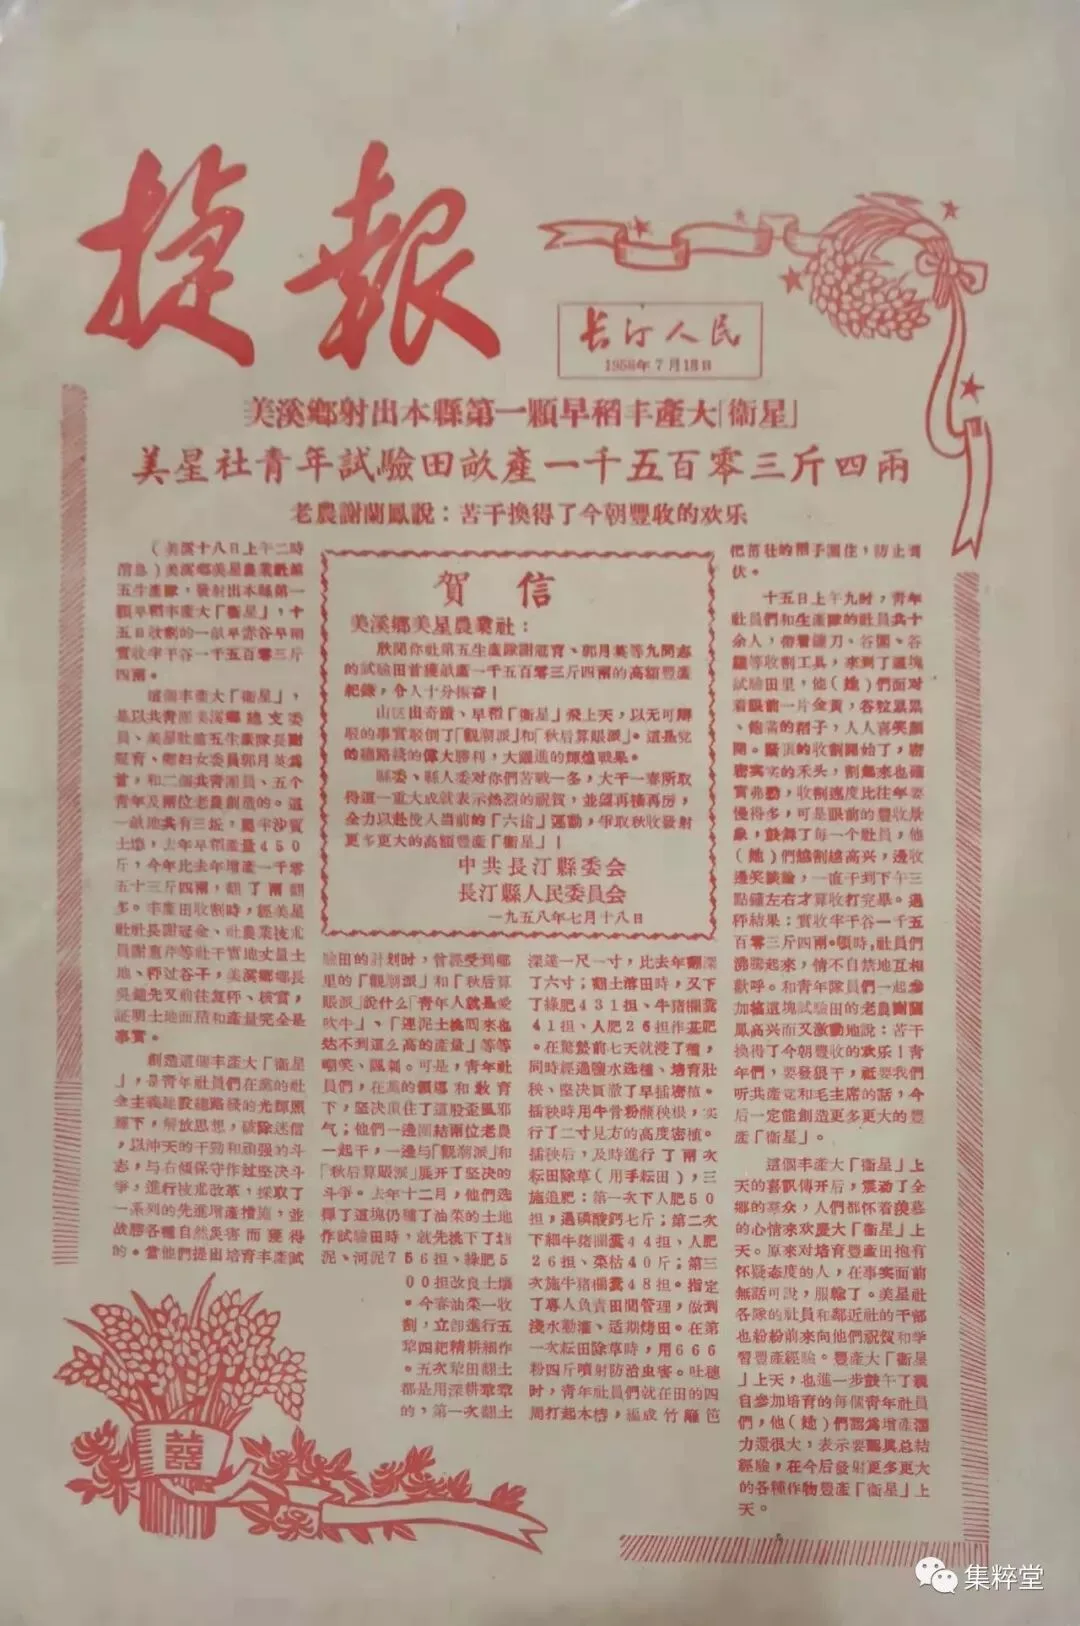 捷報
长汀人民
1958年7月18日
美溪鄉射出本縣第一顆早稻丰產大「衞星」
美星社青年試驗田畝產一千五百零三斤四兩
老農謝蘭鳳說：苦干換得了今朝豐收的欢乐
（美溪十八日上午二時
消息）美溪鄉美星農業社第
五生產隊，發射出本縣第一
顆早稻丰產大「衞星」，十
五日收割的一畝早赤谷早稻
實收牢干谷一千五百零三斤
四兩。
這個丰產大「衞星」，
是以共青團美溪鄉總支委
員、美星社第五生產隊長謝
冠育、鄉妇女委員郭月英爲
首，和二個共青團員、五个
青年及兩位老農創造的。這
一畝地共有三坵，屬半沙質
土壤，去年早稻產量450
斤，今年比去年增產一千零
五十三斤四兩，翻了兩翻
多。丰產田收割時，經美星
社社長謝冠金、社農業技朮
員謝蕙芹等社干實地丈量土
地、秤过谷干，美溪鄉鄉長
吳鍾先又前往复秤、核實，
証明土地面積和產量完全是
事實。
創造這個丰產大「衞星
」，是青年社員們在黨的社
会主義建設總路綫的光輝照
耀下，解放思想，破除迷信
，以沖天的干勁和頑强的斗
志，与右傾保守作过堅决斗
爭，進行技朮改革，採取了
一系列的先進增產措施，並
战勝各種自然災害而獲得
的。當他們提出培育丰產試
賀信
美溪鄉美星農業社：
欣聞你社第五生產隊謝冠育、郭月英等九同志
的試驗田首獲畝產一千五百零三斤四兩的高額豐產
紀錄，令人十分振奋！
山区出奇蹟、早稻「衞星」飛上天，以无可辯
駁的事實駁倒了「觀潮派」和「秋后算賬派」。這是党
的總路綫的偉大勝利，大躍進的輝煌战果。
縣委、縣人委对你們苦戰一冬，大干一春所取
得這一重大成就表示熱烈的祝賀，並望再接再厉，
全力以赴投入当前的「六搶」運動，爭取秋收發射
更多更大的高額豐產「衞星」！
中共長汀縣委会
長汀縣人民委員会
一九五八年七月十八日
驗田的計划时，曾經受到鄉
里的「觀潮派」和「秋后算
賬派」說什么「青年人就是愛
吹牛」、「連泥土挑囘來也
达不到這么高的產量」等等
嘲笑、諷刺。可是，青年社
員們，在黨的領導和敎育
下，堅决頂住了這股歪風邪
气；他們一邊團結兩位老農
一起干，一邊与「觀潮派」和
「秋后算賬派」展开了堅决的
斗爭。去年十二月，他們选
擇了這塊仍種了油菜的土地
作試驗田時，就先挑下了塘
泥、河泥756担、綠肥5
00担改良土壤
。今春油菜一收
割，立卽進行五
犂四耙精耕細作
。五次犂田翻土
都是用深耕犂犂
的，第一次翻土
深達一尺一寸，比去年翻深
了六寸；翻土溶田時，又下
了綠肥431担、牛猪欄糞
41担、人肥26担作基肥
。在驚蟄前七天就浸了種，
同時經過鹽水选種、培育壯
秧、堅决貫澈了早插密植。
插秧時用牛骨粉蘸秧根，实
行了二寸見方的高度密植。
插秧后，及時進行了兩次
耘田除草（用手耘田），三
施追肥：第一次下人肥50
担，過磷酸鈣七斤；第二次
下細牛猪欄糞44担、人肥
26担、菜枯40斤；第三
次施牛猪欄糞48担。指定
了專人負責田間管理，做到
淺水勤灌、适期烤田。在第
一次耘田除草時，用666
粉四斤噴射防治虫害。吐穗
时，青年社員們就在田的四
周打起木樁，編成竹籬笆
把茁壮的稻子圍住，防止倒
伏。
十五日上午九时，青年
社員們和生產隊的社員共十
余人，帶着鐮刀、谷圍、谷
籮等收割工具，來到了這塊
試驗田里，他（她）們面对
着眼前一片金黃，谷粒累累
、飽滿的稻子，人人喜笑顏
開。緊張的收割開始了，密
密实实的禾头，割起來也確
實弗動，收割速度比往年要
慢得多，可是眼前的豐收景
象，鼓舞了每一个社員，他
（她）們越割越高兴，邊收
邊笑談論，一直干到下午三
點鐘左右才算收打完畢。過
秤結果：實收牢干谷一千五
百零三斤四兩。頓時，社員們
沸騰起來，情不自禁地互相
歡呼。和青年隊員們一起參
加搞這塊試驗田的老農謝蘭
鳳高兴而又激動地說：苦干
換得了今朝豐收的欢乐！青
年們，要發狠干，祗要我們
听共產党和毛主席的話，今
后一定能創造更多更大的豐
產「衞星」。
這個丰產大「衞星」上
天的喜訊傳开后，震动了全
鄉的羣众，人們都怀着羨慕
的心情來欢慶大「衞星」上
天。原來对培育豐產田抱有
怀疑态度的人，在事实面前
無話可說，服輸了。美星社
各隊的社員和鄰近社的干部
也紛紛前來向他們祝賀和学
習豐產經驗。豐產大「衞星
」上天，也進一步鼓午了親
自參加培育的每個青年社員
們，他（她）們認爲增產潛
力還很大，表示要認眞总結
經驗，在今后發射更多更大
的各種作物豐產「衞星」上
天。
囍
集粹堂